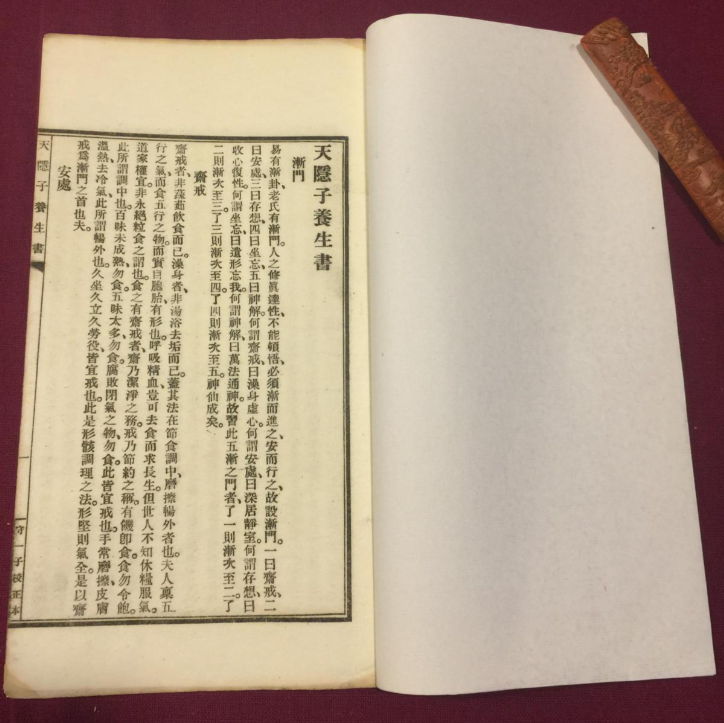 天隱子養生書
漸門
易有漸卦、老氏有漸門、人之修真達性、不能頓悟、必須漸而進之、安而行之、故設漸門、一曰齋戒、二
曰安處、三曰存想、四曰坐忘、五曰神解、何謂齋戒、曰澡身虛心、何謂安處、曰深居靜室、何謂存想、曰
收心復性、何謂坐忘、曰遺形忘我、何謂神解、曰萬法通神、故習此五漸之門者、了一則漸次至二、了
二則漸次至三、了三則漸次至四、了四則漸次至五、神仙成矣。
齋戒
齋戒者、非蔬茹飲食而已、澡身者、非湯浴去垢而已、蓋其法在節食調中、磨擦暢外者也、夫人稟五
行之氣、而食五行之物、而實自胞胎有形也、呼吸精血、豈可去食而求長生、但世人不知休糧服氣、
道家權宜、非永絕粒食之謂也、食之有齋戒者、齋乃潔淨之務、戒乃節約之稱、有饑卽食、食勿令飽、
此所謂調中也、百味未成熟勿食、五味太多勿食、腐敗閉氣之物勿食、此皆宜戒也、手常磨擦皮膚
溫熱、去冷氣、此所謂暢外也、久坐久立久勞役、皆宜戒也、此是形骸調理之法、形堅則氣全、是以齋
戒爲漸門之首也夫。
安處
天隱子養生書
一
守一子校正本